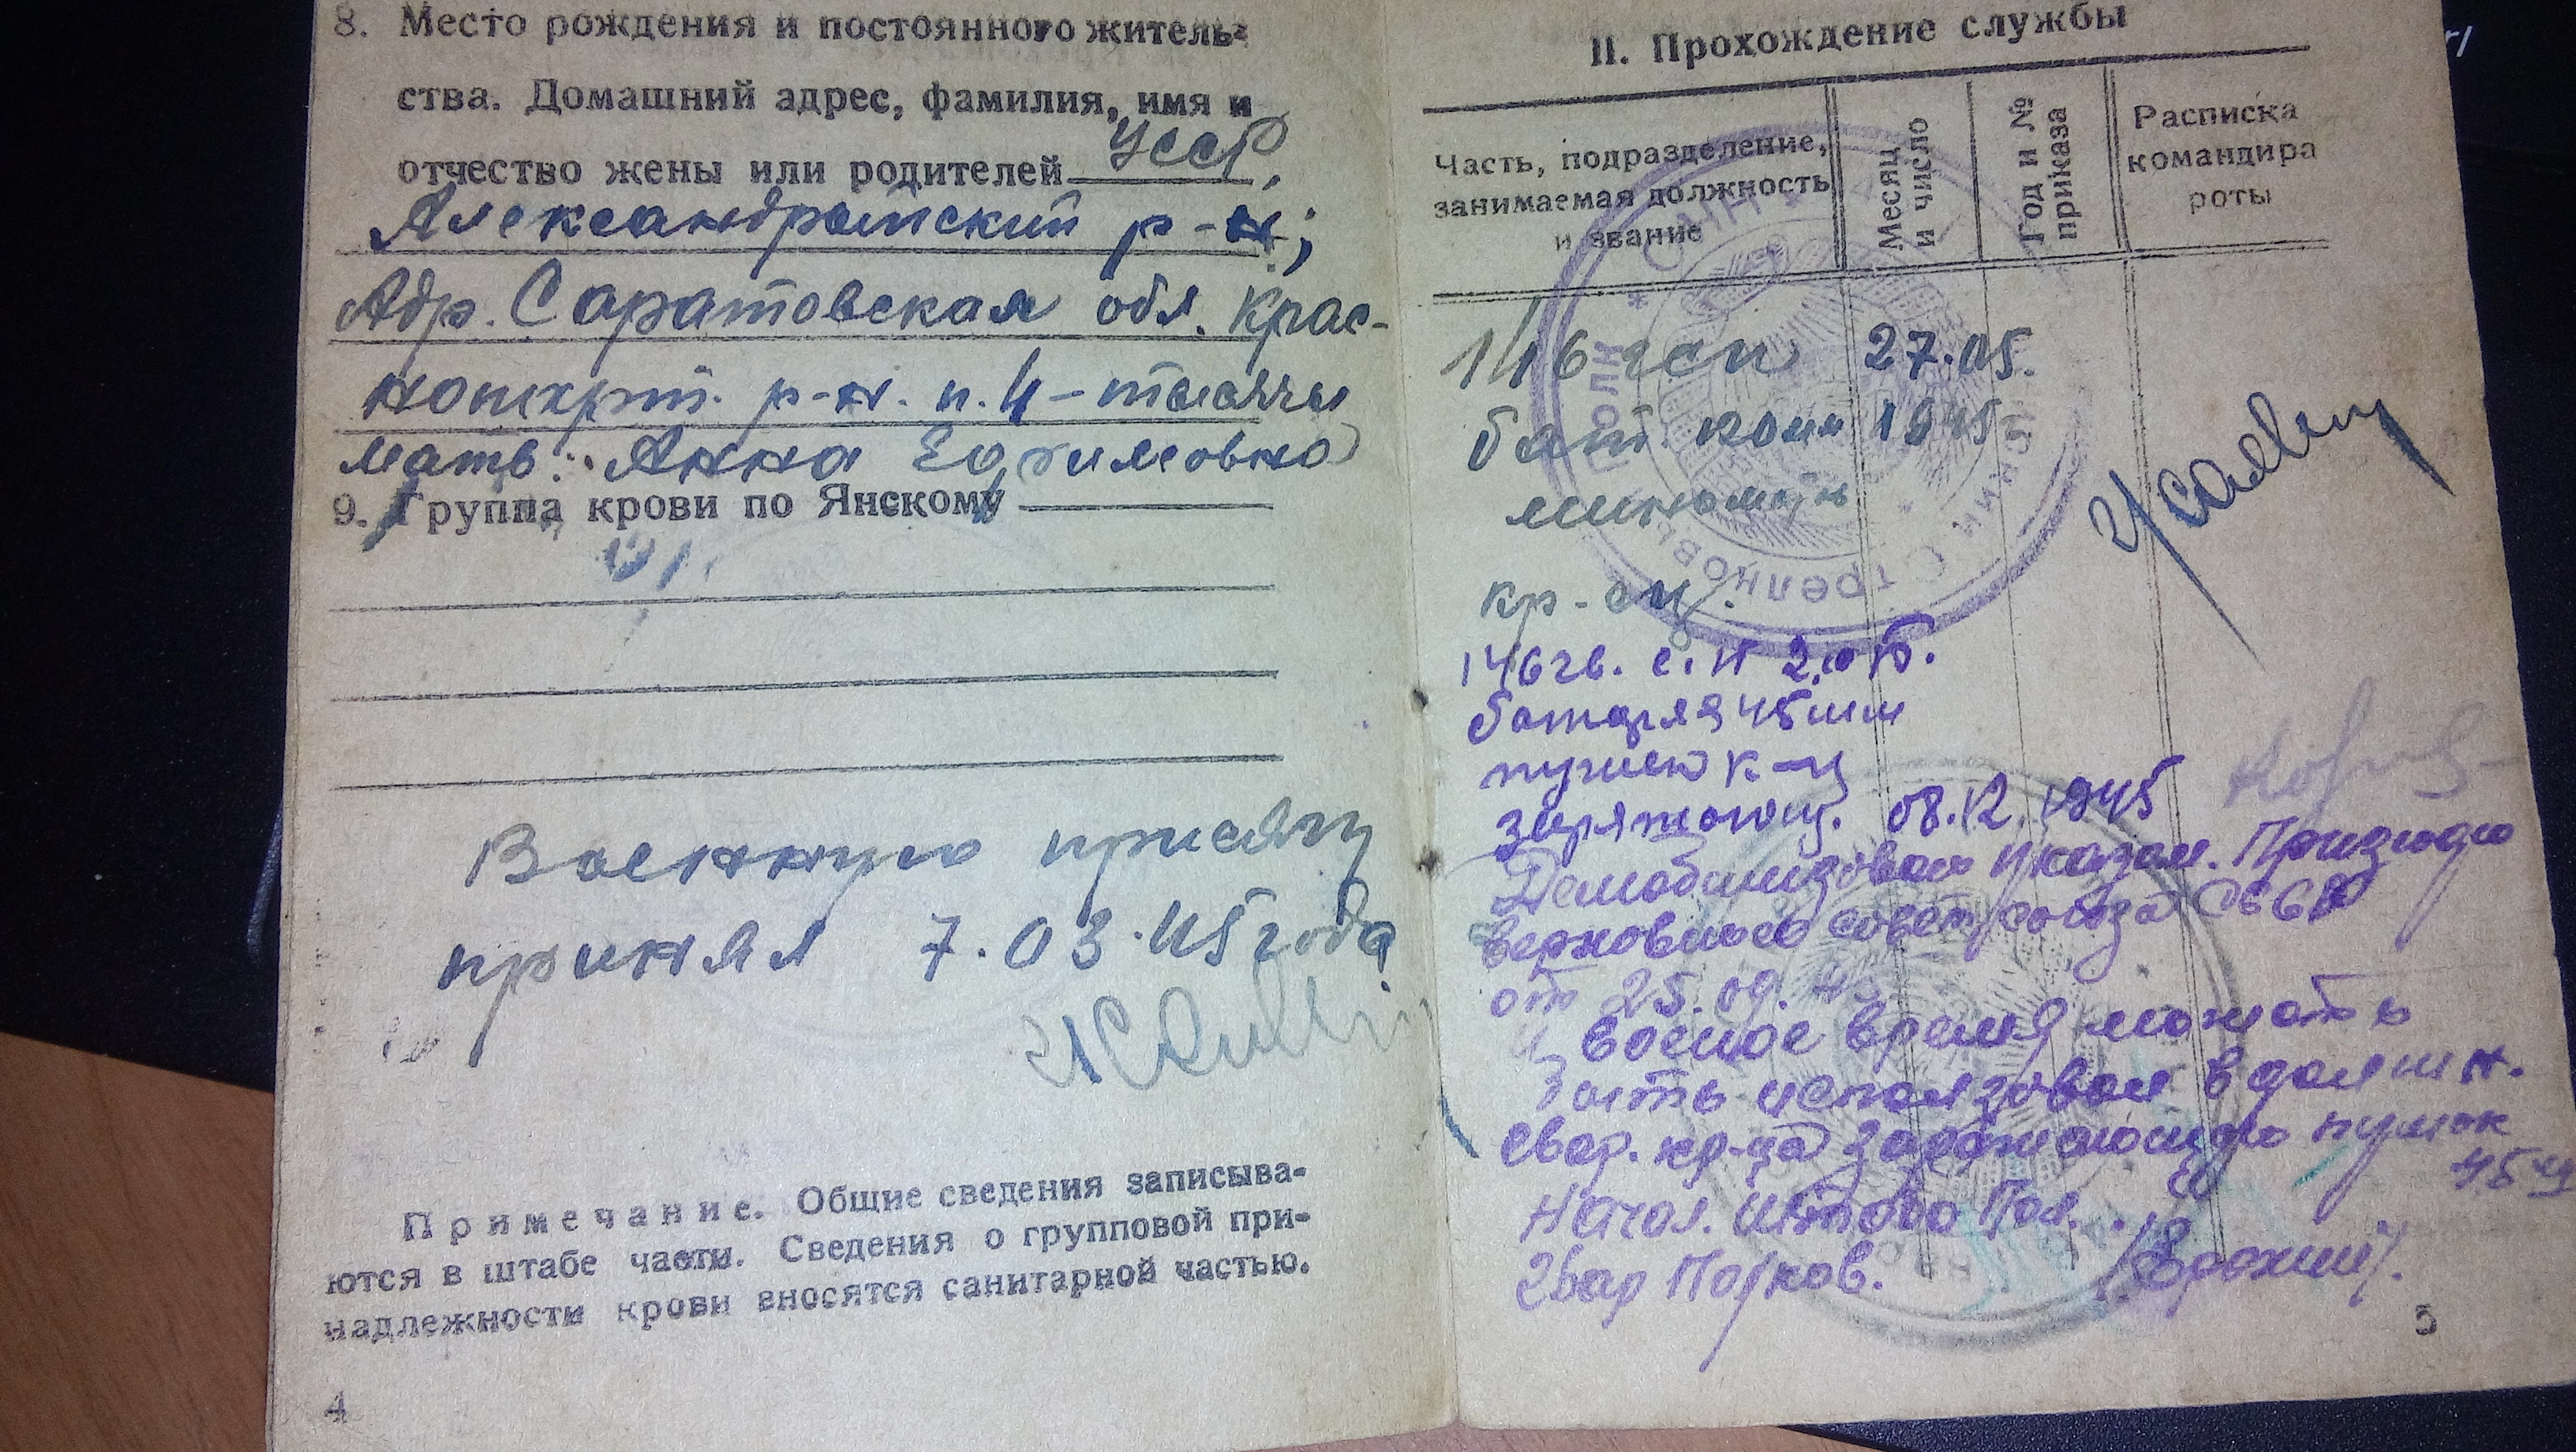 8. Место рождения и постоянного житель-
ства. Домашний адрес, фамилия, имя и
отчество жены или родителей УССР,
р-н;
Адр. Саратовская обл. Крас-
р-н. п. 4-тысячи
мать: Анна Ефимовна
9. Группа крови по Янскому
Военную присягу
принял 7.03.45 года
Примечание. Общие сведения записыва-
ются в штабе части. Сведения о групповой при-
надлежности крови вносятся санитарной частью.
4
II. Прохождение службы
Часть, подразделение,
занимаемая должность
и звание
Месяц
и число
Год и №
приказа
Расписка
командира
роты
146 гсп 27.05.
бат. 1945
кр-ец.
146 гв. с.п
батарея 45 мм
пушек к-ц
заряжающ. 08.12.1945
Демобилизован указом. Президио
верховного совет союза СССР
от 25.09.45
военое время
быть использован в должн.
гвар. кр-ца заряжающего пушок
45
Начал. Штаба Пол.
Гвар Полков.
5